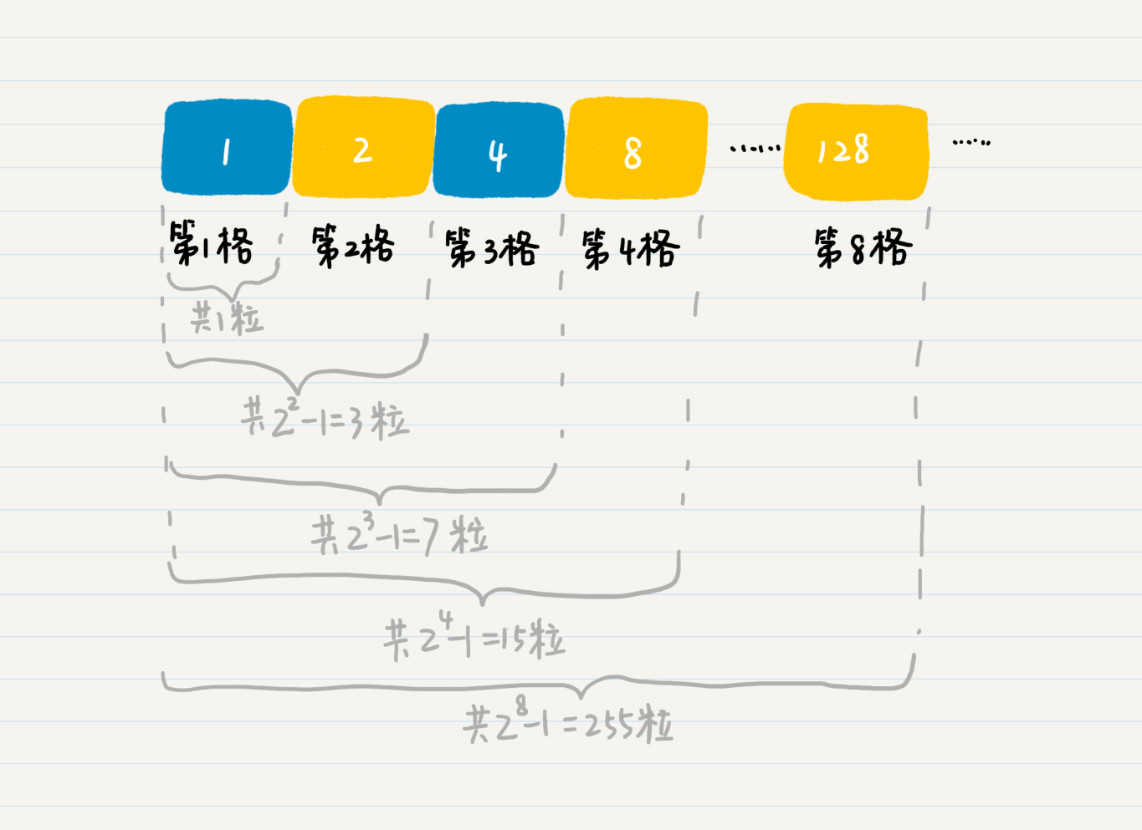 1 2 4 8 …… 128 ……
第1格 第2格 第3格 第4格 第8格
共1粒
共2²-1=3粒
共2³-1=7粒
共2⁴-1=15粒
共2⁸-1=255粒